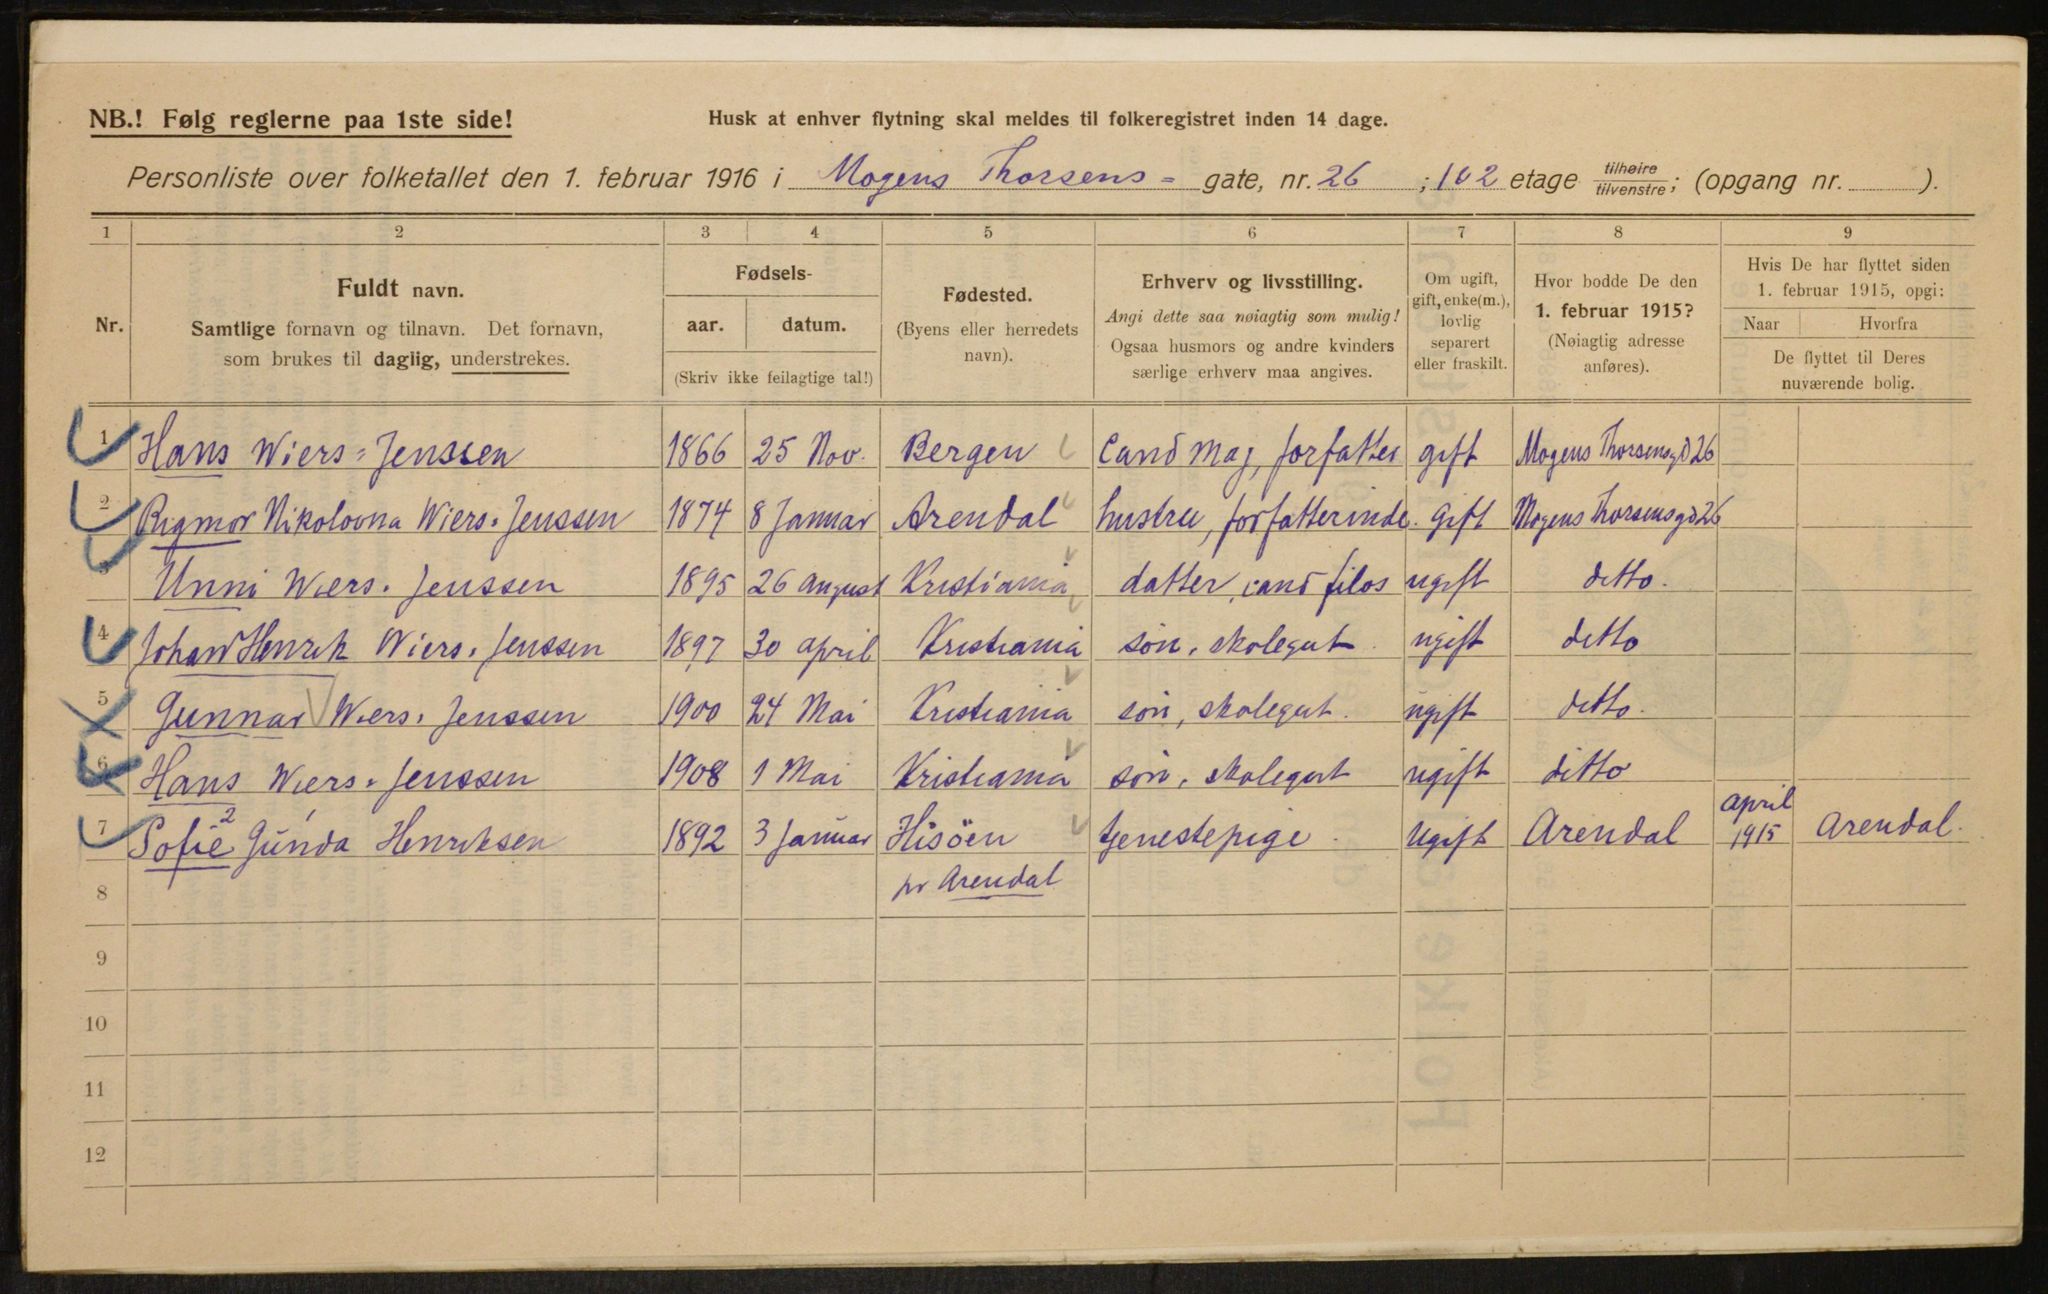 NB.! Følg reglerne paa 1ste side!
Husk at enhver flytning skal meldes til folkeregistret inden 14 dage.
Personliste over folketallet den 1. februar 1916 i Mogens Thorsens - gate, nr. 26 ; 1 o 2 etage tilhøire tilvenstre; (opgang nr. ).
1 2 3 4 5 6 7 8 9
Nr.
Fuldt navn.
Samtlige fornavn og tilnavn. Det fornavn,
som brukes til daglig, understrekes.
Fødsels-
aar. datum.
(Skriv ikke feilagtige tal!)
Fødested.
(Byens eller herredets
navn).
Erhverv og livsstilling.
Angi dette saa nøiagtig som mulig!
Ogsaa husmors og andre kvinders
særlige erhverv maa angives.
Om ugift,
gift, enke(m.),
lovlig
separert
eller fraskilt.
Hvor bodde De den
1. februar 1915?
(Nøiagtig adresse
anføres).
Hvis De har flyttet siden
1. februar 1915, opgi:
Naar Hvorfra
De flyttet til Deres
nuværende bolig.
1 Hans Wiers-Jenssen 1866 25 Nov. Bergen Cand mag, forfatter gift Mogens Thorsensgd 26
2 Rigmor Nikolovna Wiers-Jenssen 1874 8 Januar Arendal hustru, forfatterinde. gift Mogens Thorsensgd 26
3 Unni Wiers-Jenssen 1895 26 august Kristiania datter, cand filos ugift ditto.
4 Johan Henrik Wiers-Jenssen 1897 30 april Kristiania søn, skolegut ugift ditto
5 Gunnar Wiers-Jenssen 1900 24 Mai Kristiania søn, skolegut. ugift ditto.
6 Hans Wiers-Jenssen 1908 1 Mai Kristiania søn, skolegut ugift ditto
7 Sofie 2 Gunda Henriksen 1892 3 Januar Hisöen tjenestepige. ugift Arendal april 1915 Arendal.
8 pr Arendal
9
10
11
12